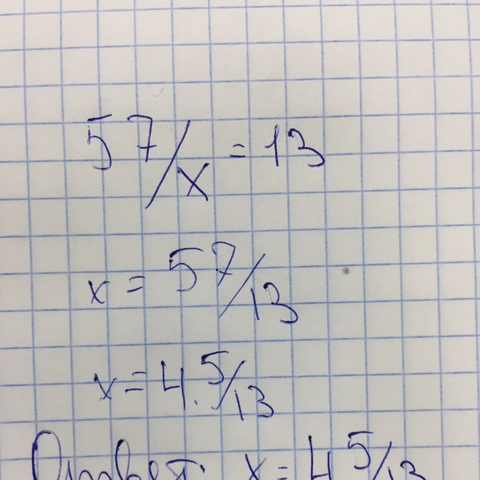 57/x = 13
x = 57/13
x = 4 5/13
Ответ: x = 4 5/13